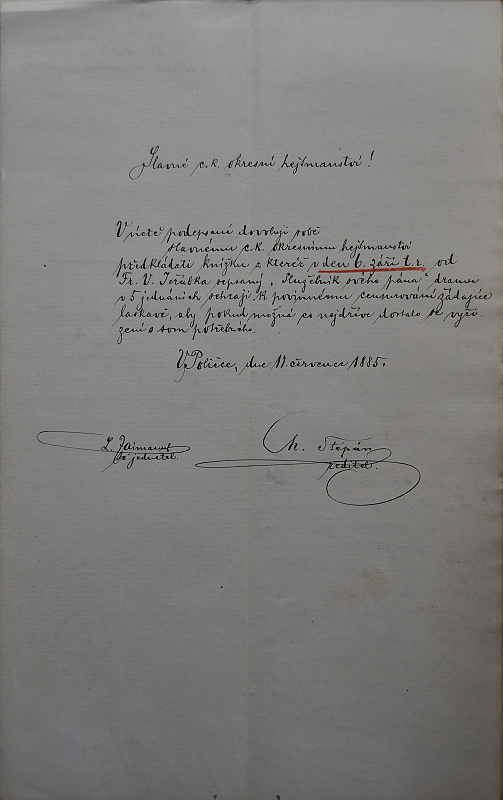 Slavné c. k. okresní hejtmanství!
V úctě podepsaní dovolují sobě
slavnému c. k. okresnímu hejtmanství
předkládati knížku z kteréž v den 6. září t. r. od
Fr. V. Jeřábka sepsaný „Služebník svého pána", drama
v 5 jednáních sehrají k povinnému censurování žádajíce
laskavě, aby pokud možná co nejdříve dostalo se vyří-
zení o tom potřebného.
V Poličce, dne 11. července 1885.
Ch. Štěpán
L.
jednatel. ředitel.